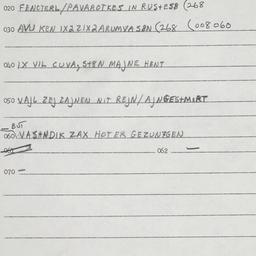 020 FENCTERL/PAVAROTKES IN RUSHESB (268
030 AVU KEN IX2ZIX2ARUMVASAN (268 (008060
040 IX VIL CUVA, STEN MAJNE HENT
050 VAJL ZEJ ZAJNEN NIT REJN/AJNGESHMIRT
BUT
060 VASHNDIK ZAX HOTER GEZUNGEN
061 062 —
070 —